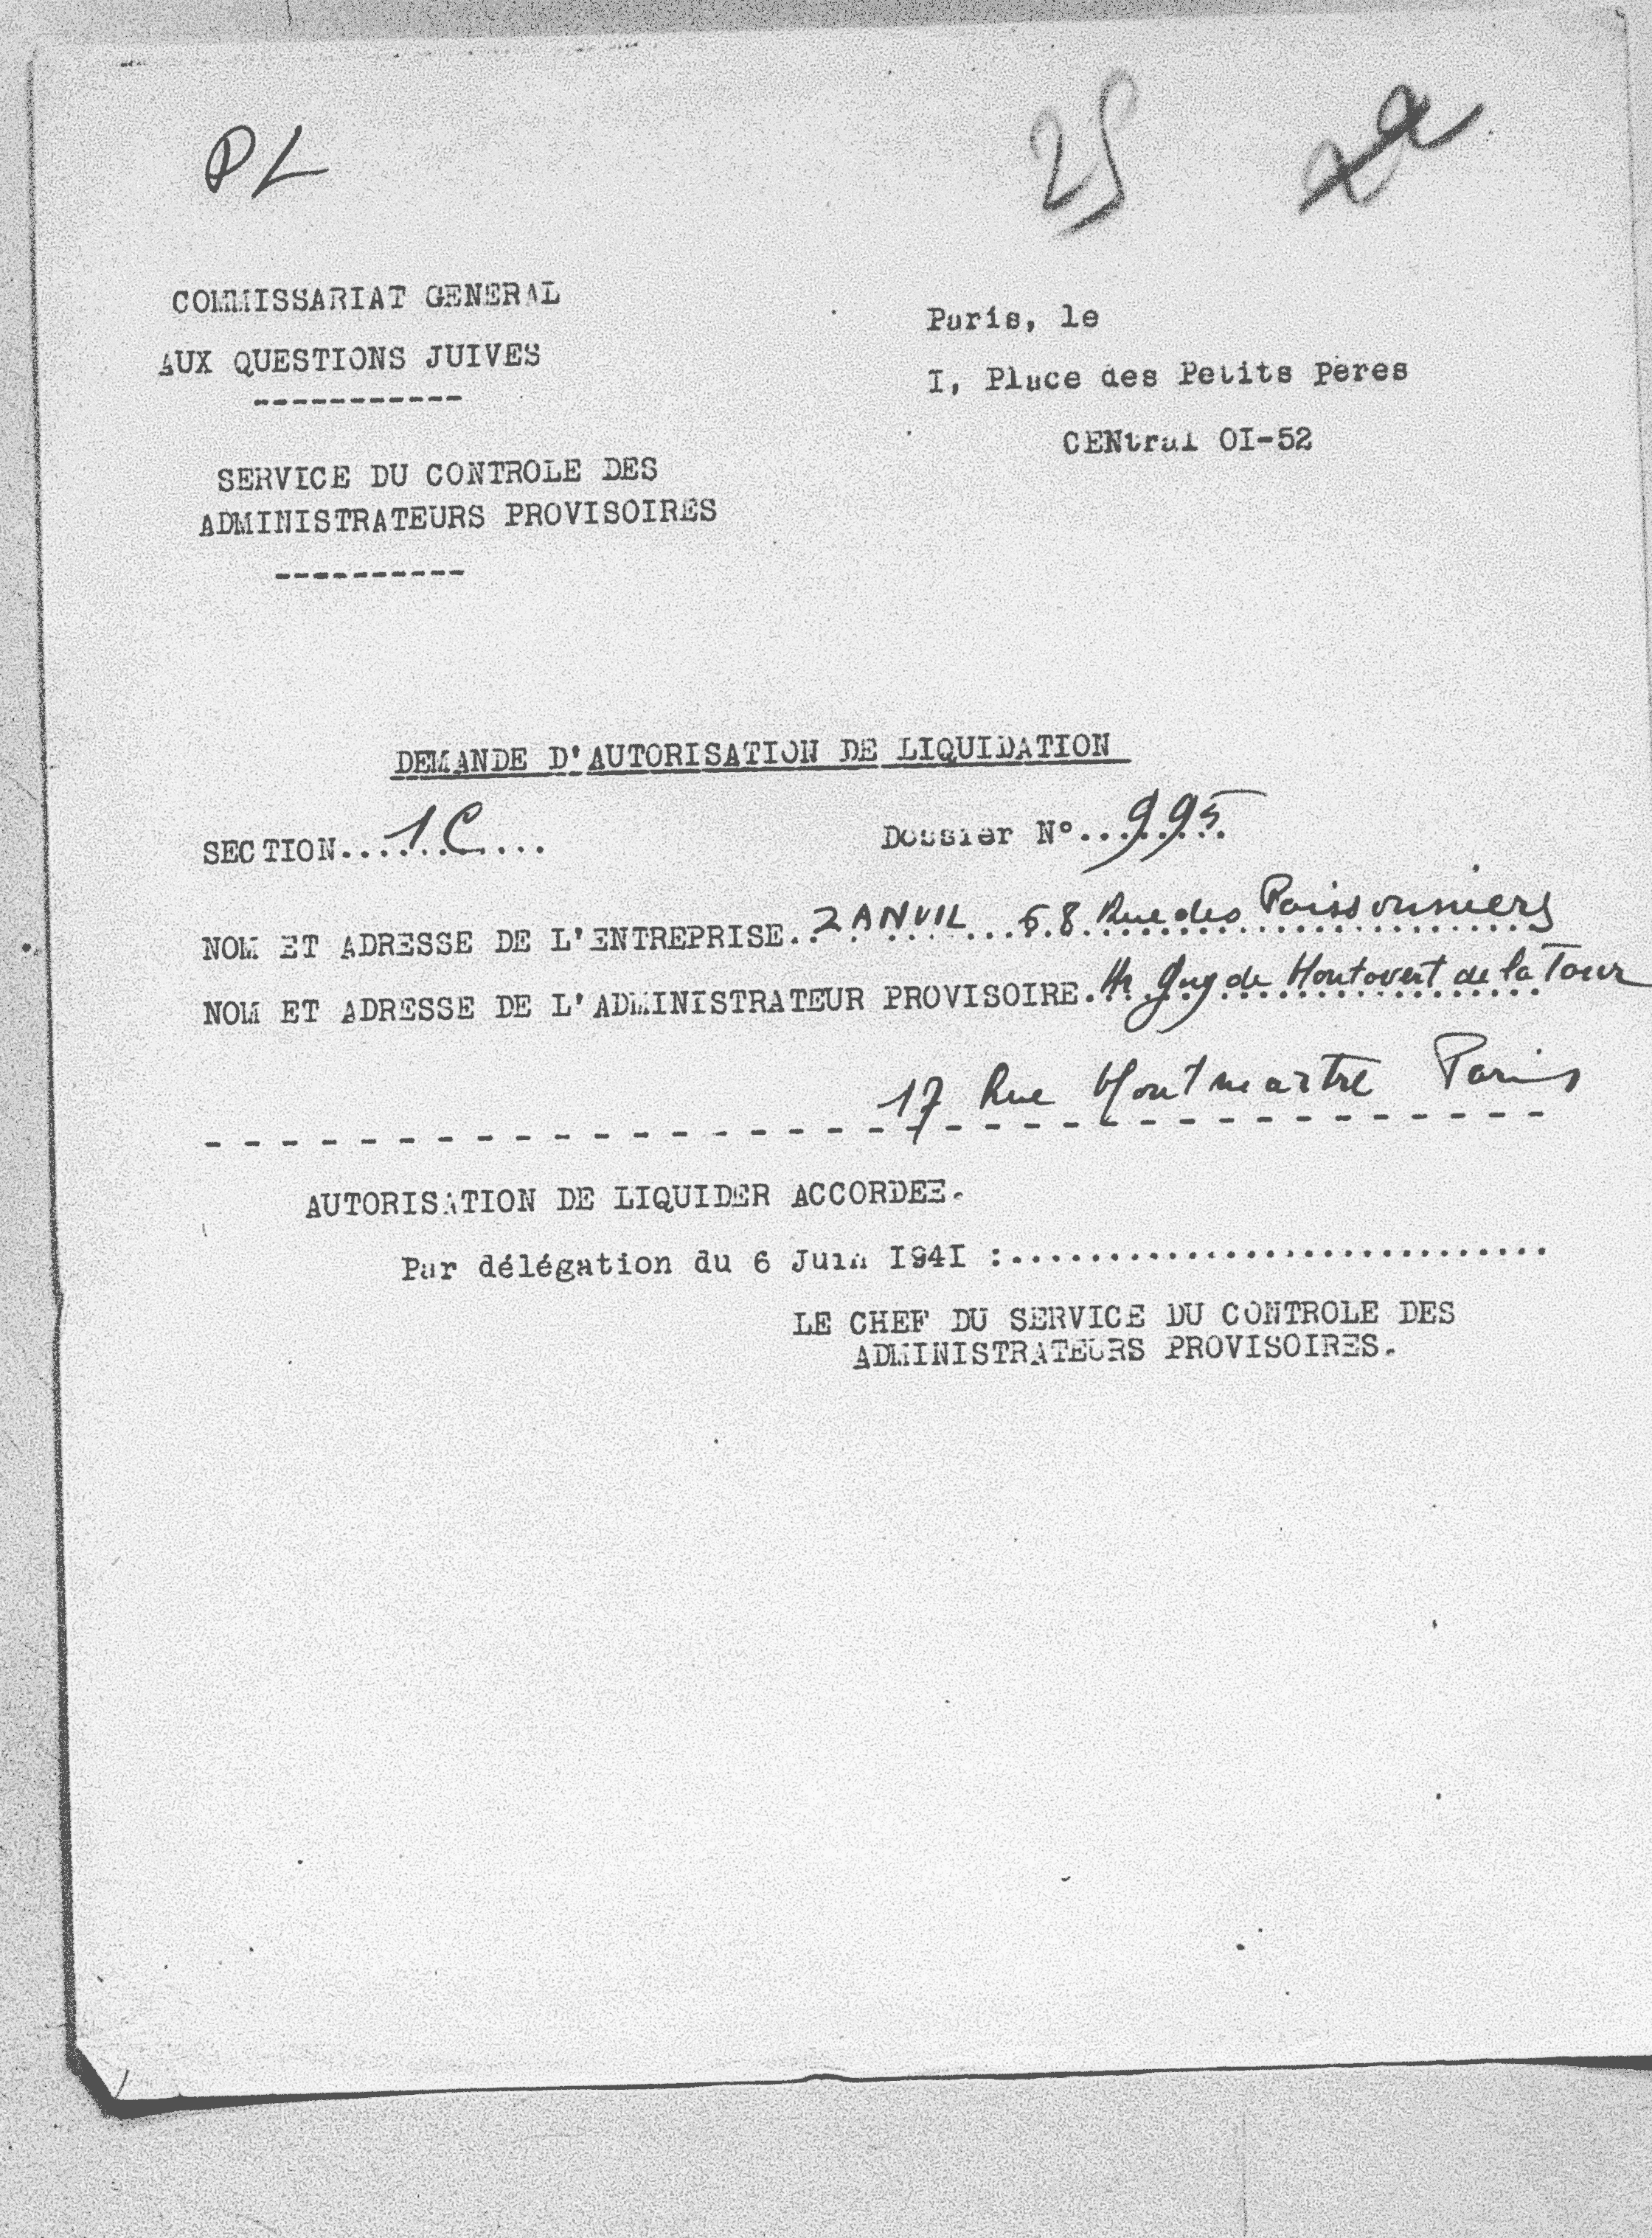 PL
25
COMMISSARIAT GENERAL
AUX QUESTIONS JUIVES
-----------
SERVICE DU CONTROLE DES
ADMINISTRATEURS PROVISOIRES
----------
Paris, le
I, Place des Petits Pères
CENtral OI-52
DEMANDE D'AUTORISATION DE LIQUIDATION
SECTION....1C.... Dossier N°...995
NOM ET ADRESSE DE L'ENTREPRISE..ZANVIL...68 Rue des Poissonniers
NOM ET ADRESSE DE L'ADMINISTRATEUR PROVISOIRE.Mr Guy de Montovert de la Tour
17 Rue Montmartre Paris
AUTORISATION DE LIQUIDER ACCORDEE.
Par délégation du 6 Juin I94I :............................
LE CHEF DU SERVICE DU CONTROLE DES
ADMINISTRATEURS PROVISOIRES.